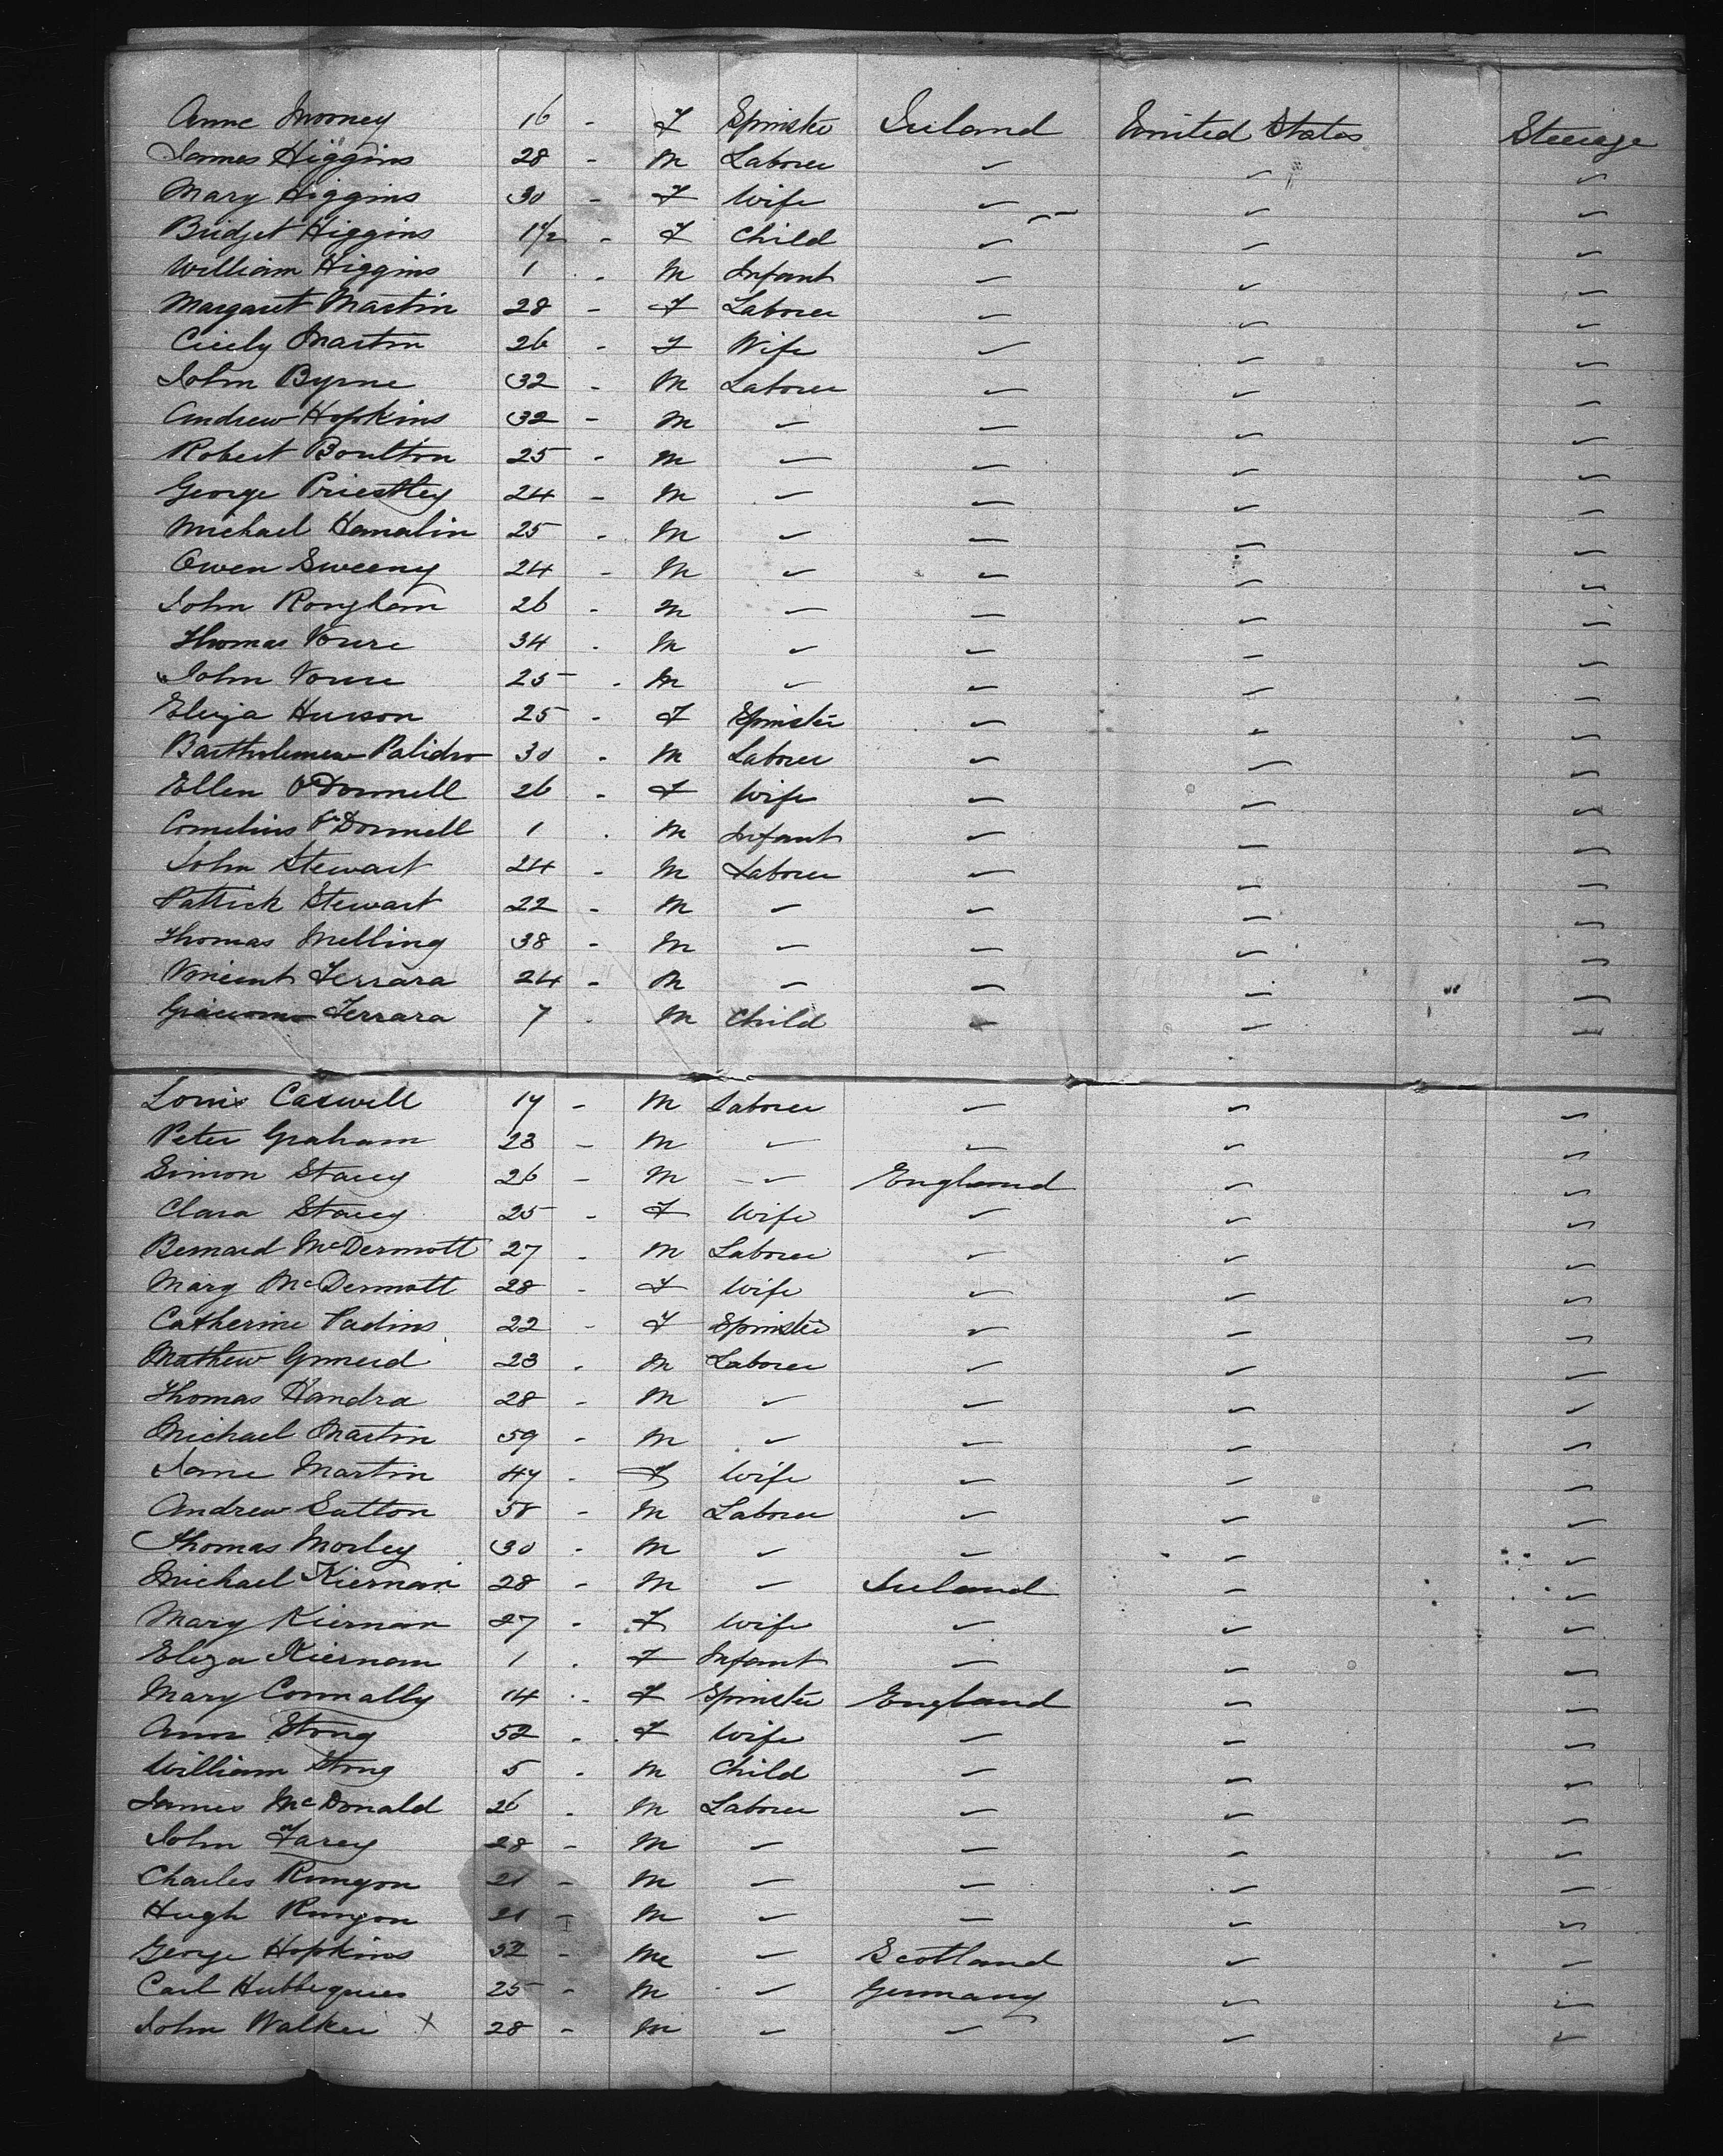 Anne Mooney 16 - F Spinster Ireland United States Steerage
James Higgins 28 - M Laborer
Mary Higgins 30 - F Wife
Bridget Higgins 1 1/2 - F Child
William Higgins 1 - M Infant
Margaret Martin 28 - F Laborer
Cicily Martin 26 - F Wife
John Byrne 32 - M Laborer
Andrew Hopkins 32 - M
Robert Boulton 25 - M
George Priestley 24 - M
Michael Hanalin 25 - M
Owen Sweeny 24 - M
John 26 - M
Thomas 34 - M
John 25 - M
Eliza Hurson 25 - F Spinster
Bartholemew 30 - M Laborer
Ellen O'Donnell 26 - F Wife
Cornelius O'Donnell 1 - M Infant
John Stewart 24 - M Laborer
Patrick Stewart 22 - M
Thomas Melling 38 - M
Vincent Ferrara 24 - M
Giacomo Ferrara 7 - M Child
Louis Caswell 17 - M Laborer
Peter Graham 23 - M
Simon Stacey 26 - M England
Clara Stacey 25 - F Wife
Bernard McDermott 27 - M Laborer
Mary McDermott 28 - F Wife
Catherine 22 - F Spinster
Mathew 23 - M Laborer
Thomas Handra 28 - M
Michael Martin 59 - M
Jane Martin 47 - F Wife
Andrew Sutton 58 - M Laborer
Thomas Morley 30 - M
Michael Kiernan 28 - M Ireland
Mary Kiernan 27 - F Wife
Eliza Kiernan 1 - F Infant
Mary Connally 14 - F Spinster England
Ann Stong 52 - F Wife
William Stong 5 - M Child
James McDonald 26 - M Laborer
John Farey 28 - M
Charles Runyon 21 - M
Hugh Runyon 21 - M
George Hopkins 32 - M Scotland
Carl 25 - M Germany
John Walker x 28 - M